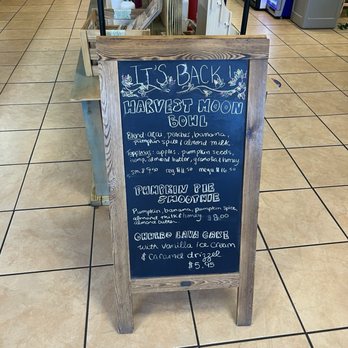 IT'S BACK!
HARVEST MOON
BOWL
Blend: acai, peaches, banana,
pumpkin spice / almond milk
Toppings: apples, pumpkin seeds,
hemp, almond butter, granola & honey
sm $9.50 reg $11.50 mega $16.50
PUMPKIN PIE
SMOOTHIE
Pumpkin, banana, pumpkin spice
almond milk & honey $8.00
almond butter
LAVA CAKE
with Vanilla Ice Cream
& Caramel drizzel
$5.95